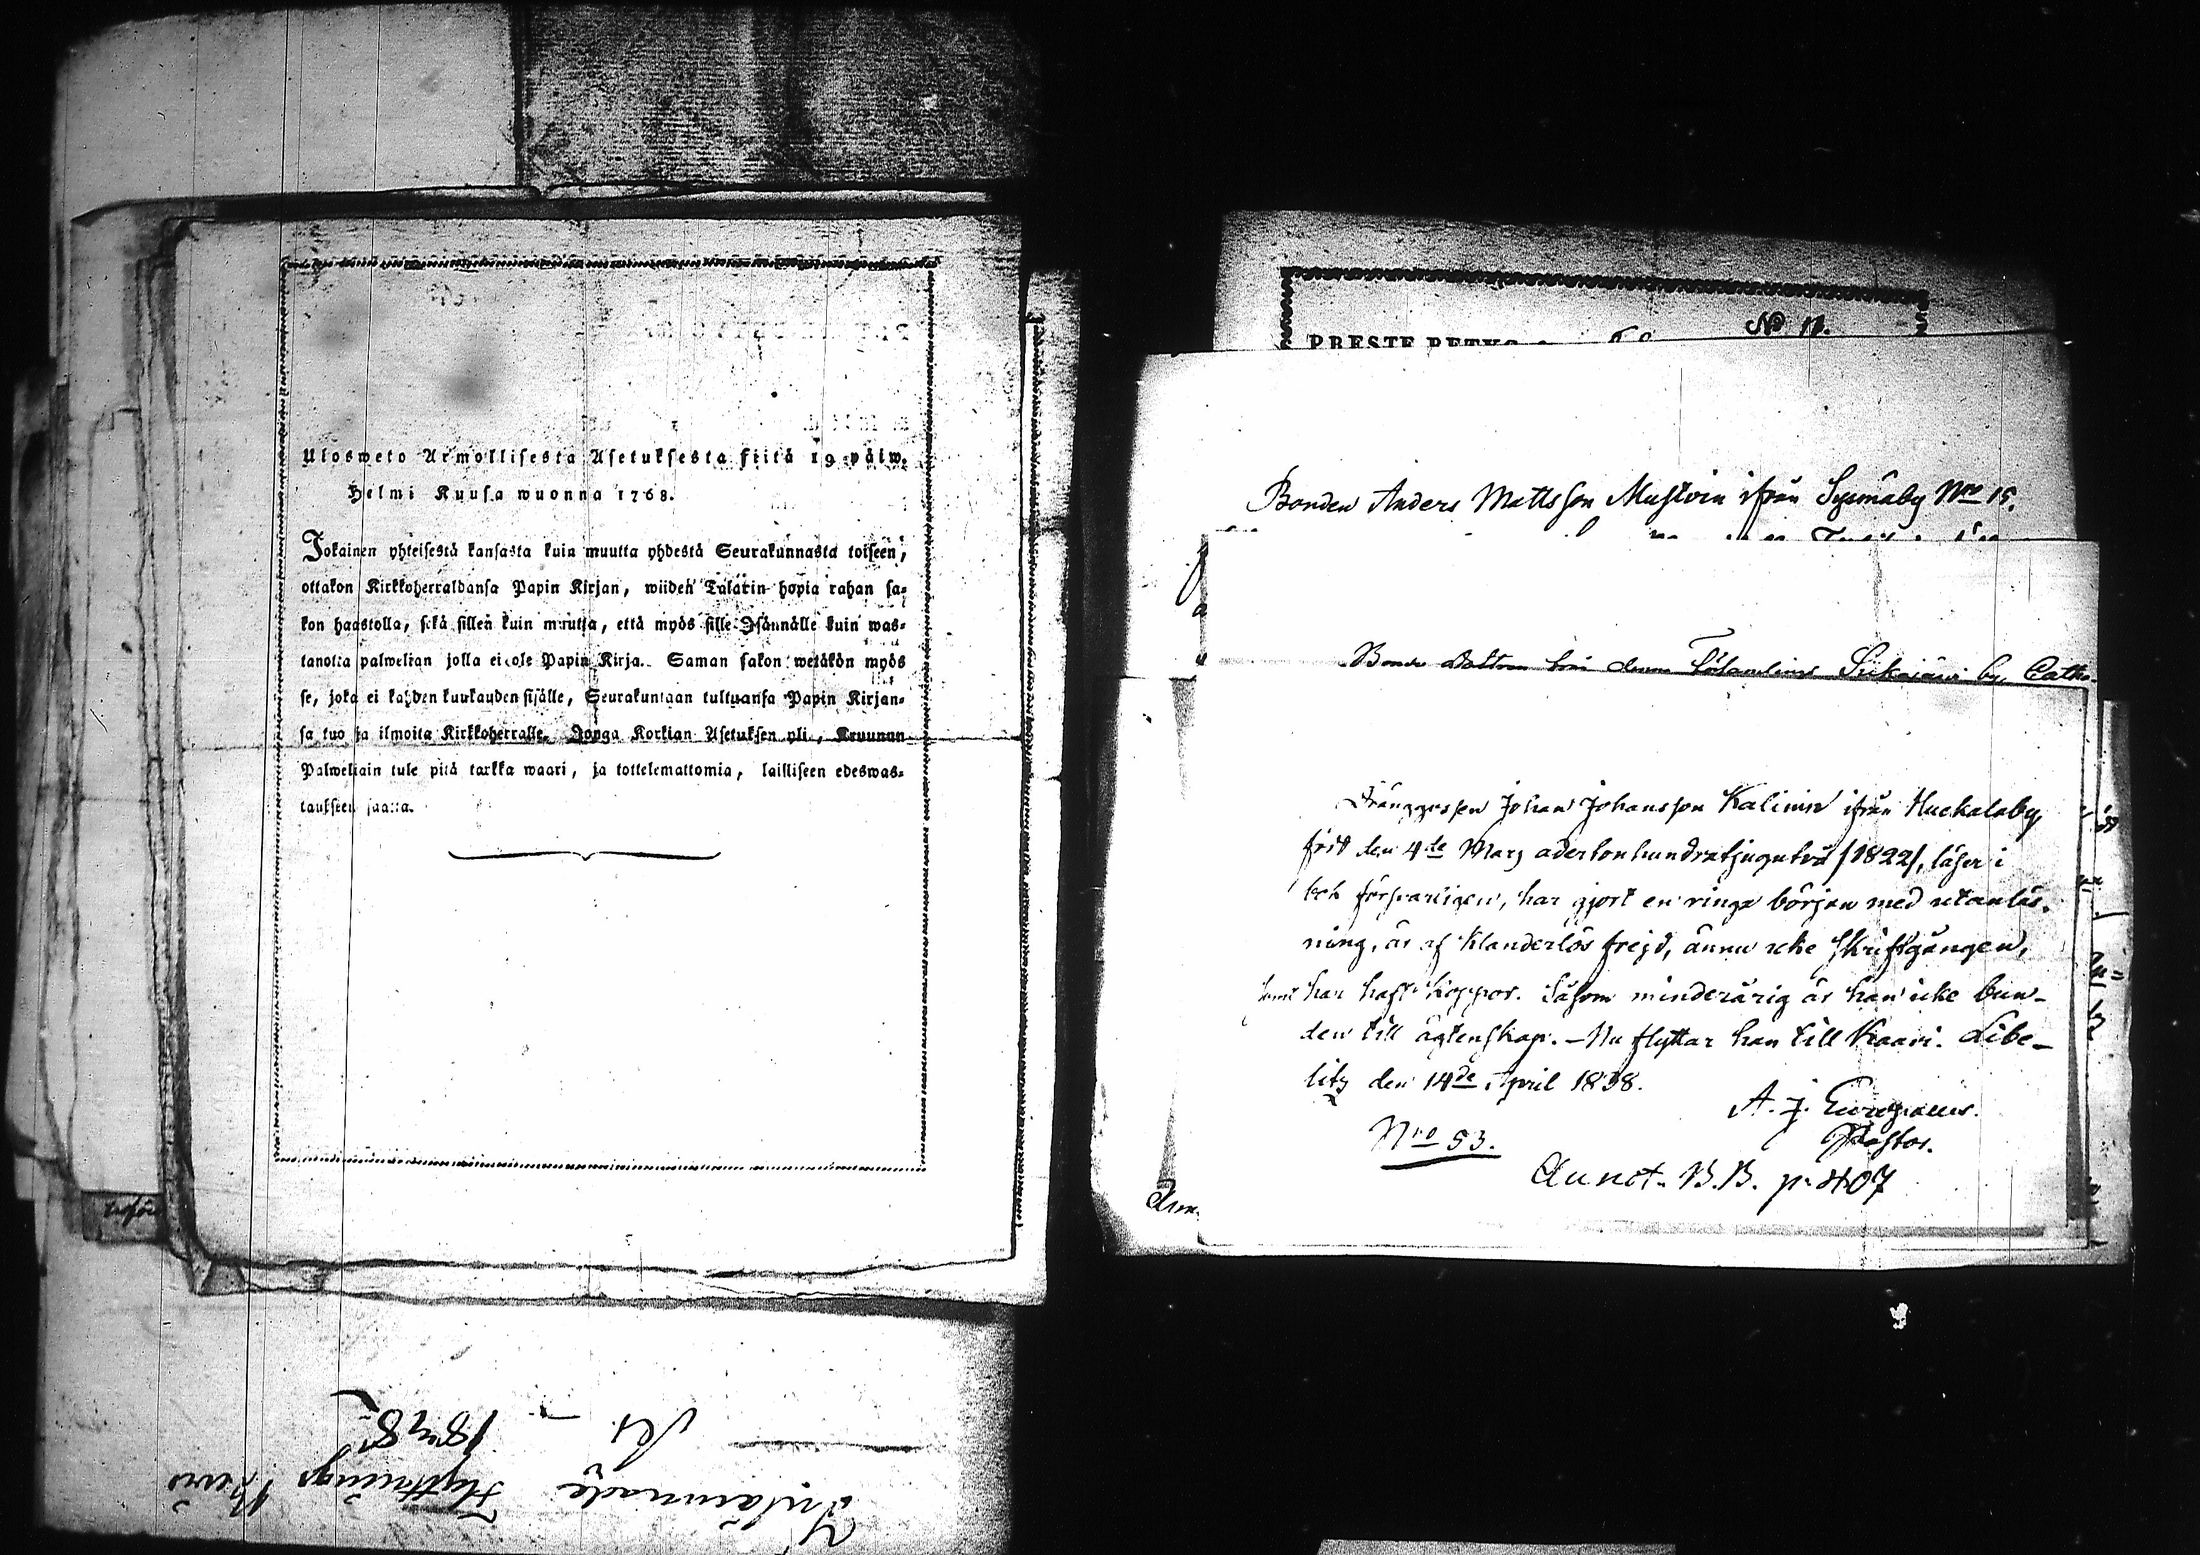 Ulosweto Armollisesta Asetuksesta siitä 19 päiw.
Helmi Kuusa wuonna 1768.
Jokainen yhteisestä kansasta kuin muutta yhdestä Seurakunnasta toiseen,
ottakon Kirkkoherraldansa Papin Kirjan, wiiden Talarin hopia rahan sa-
kon haastolla, sekä sillen kuin muutta, että myös sille Isännälle kuin was-
tanotta palwelian jolla ei ole Papin Kirja. Saman sakon wetäkön myös
se, joka ei kahden kuukauden sisälle, Seurakuntaan tultuansa Papin Kirjan-
sa tuo ja ilmoita Kirkkoherralle. Jonga Korkian Asetuksen yli, Kruunun
Palweliain tule pitä tarkka waari, ja tottelemattomia, lailliseen edeswas-
taukseen saatta.
Inlämnade Flyttnings
1848
N:o 11.
PRESTE BETYG
Bonden Anders Mattsson Mustoin ifrån Sysmäby Nro 15.
Bonde Dottren från Cath
Ann
Dränggossen Johan Johansson Kalinin ifrån Huckalaby
född den 4de Mars adertonhundratjugutvå /1822/, läser i
bok försvarligen, har gjort en ringa början med utanläs-
ning, är af klanderlös frejd, ännu icke skriftgången,
samt har haft koppor. Såsom minderårig är han icke bun-
den till ägtenskap. – Nu flyttar han till Kaavi. Libe-
litz den 14de April 1838.
A. J. Europaeus.
Pastor.
Nro 53.
Annot. B.B. p. 407